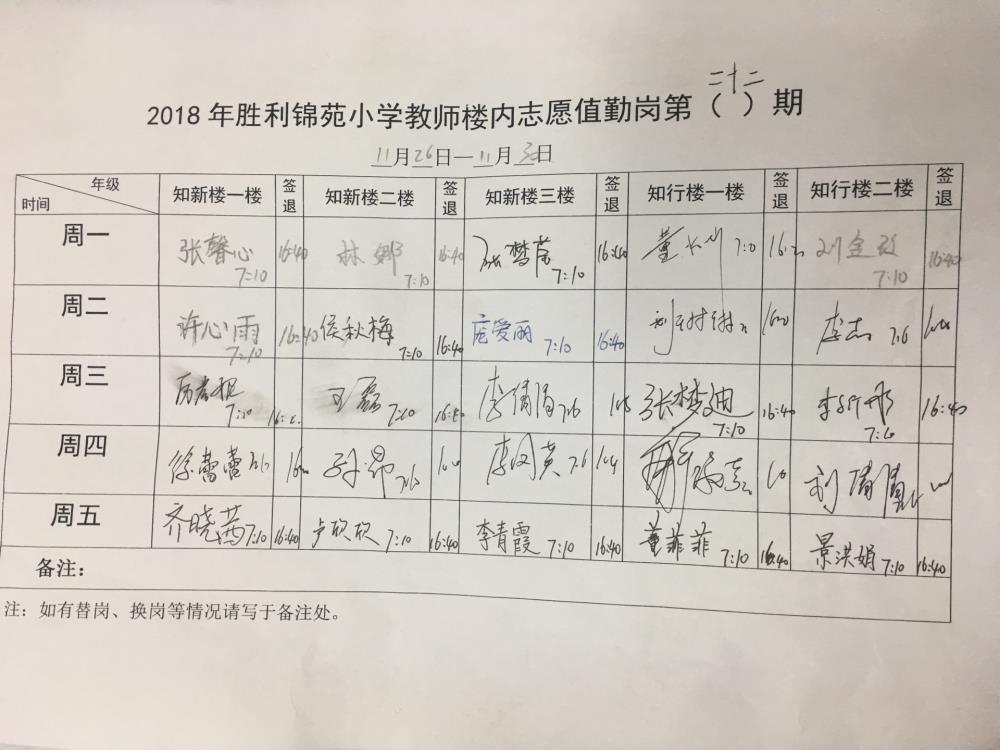 二十二
2018年胜利锦苑小学教师楼内志愿值勤岗第（ ）期
11月26日—11月30日
年级 时间 知新楼一楼 签退 知新楼二楼 签退 知新楼三楼 签退 知行楼一楼 签退 知行楼二楼 签退
周一 张馨心 7:10 16:40 林娜 7:10 16:40 张梦莹 7:10 16:40 董 7:0 刘金 7:10 16:40
周二 许心雨 7:10 16:40 侯秋梅 7:10 16:40 庞爱丽 7:10 16:40 李杰
周三 7:10 王磊 7:10 李倩 张梦迪 7:10 16:40 李 16:40
周四 徐蕾蕾 孙昂 李 刘倩倩
周五 齐晓茜 7:10 16:40 卢欣欣 7:10 16:40 李青霞 7:10 16:40 董菲菲 7:10 16:40 景洪娟 7:10 16:40
备注：
注：如有替岗、换岗等情况请写于备注处。